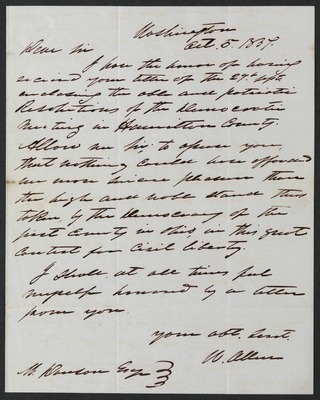 Washington
Oct. 5. 1837.
Dear Sir
I have the honor of having
received your letter of the 29th ult.
enclosing the able and patriotic
Resolutions of the Democratic
Meeting in Hamilton County.
Allow me, Sir, to assure you,
that nothing could have afforded
me more sincere pleasure than
the high and noble stand thus
taken, by the Democracy of the
first County in Ohio, in this great
Contest for Civil liberty.
I shall, at all times, feel
myself honored by a letter
from you.
your obt. Servt.
W. Allen
M Dawson Esqr